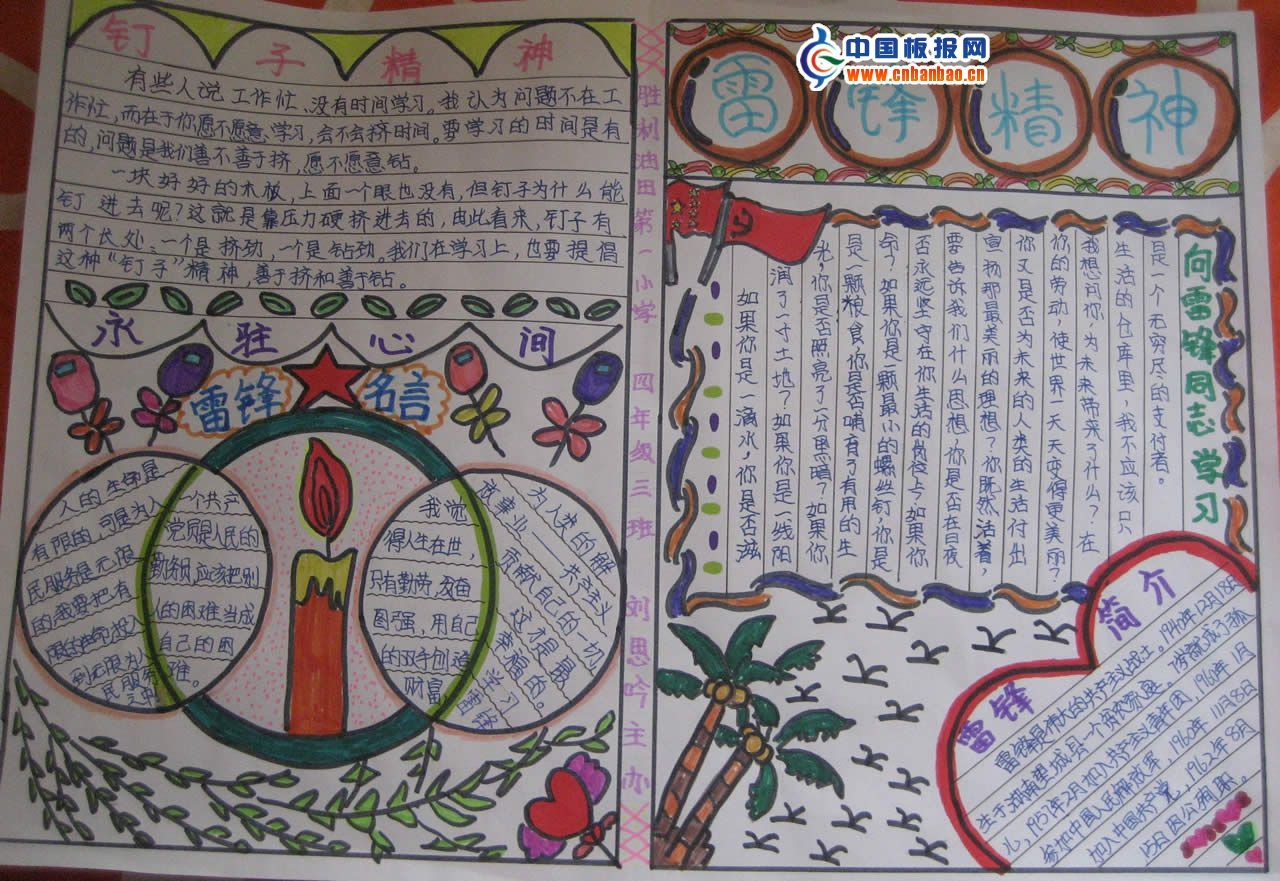 钉子精神
有些人说工作忙、没有时间学习。我认为问题不在工
作忙,而在于你愿不愿意学习,会不会挤时间。要学习的时间是有
的,问题是我们善不善于挤,愿不愿意钻。
一块好好的木板,上面一个眼也没有,但钉子为什么能
钉进去呢?这就是靠压力硬挤进去的,由此看来,钉子有
两个长处:一个是挤劲,一个是钻劲。我们在学习上,也要提倡
这种“钉子”精神,善于挤和善于钻。
永驻心间
雷锋名言
人的生命是
有限的,可是为人
民服务是无限
的我要把有
限的生命投入
到无限为人
民服务
之中
一个共产
党员是人民的
勤务员,应该把别
人的困难当成
自己的困
难。
我觉
得人生在世,
只有勤劳,发奋
图强,用自己
的双手创造
财富
为人类的解
放事业——共产主义
贡献自己的一切
这才是最
幸福的。
学习
雷锋
胜利油田第一小学 四年级三班 刘思吟主办
中国板报网
www.cnbanbao.cn
雷锋精神
向雷锋同志学习
是一个无穷尽的支付者。
生活的仓库里,我不应该只
我想问你,为未来带来了什么?在
你的劳动,使世界一天天变得更美丽?
你又是否为未来的人类的生活付出
宣扬那最美丽的理想?你既然活着,
要告诉我们什么思想,你是否在日夜
否永远坚守在你生活的岗位上?如果你
命?如果你是一颗最小的螺丝钉,你是
是一颗粮食,你是否哺育了有用的生
光,你是否照亮了一分黑暗?如果你
润了一寸土地?如果你是一线阳
如果你是一滴水,你是否滋
雷锋简介
雷锋是伟大的共产主义战士。1940年12月18日
生于湖南望城县一个贫农家庭,
儿,1957年2月加入共产主义青年团,1960年1月
参加中国人民解放军,1960年11月8日
加入中国共产党,1962年8月
15日因公殉职。